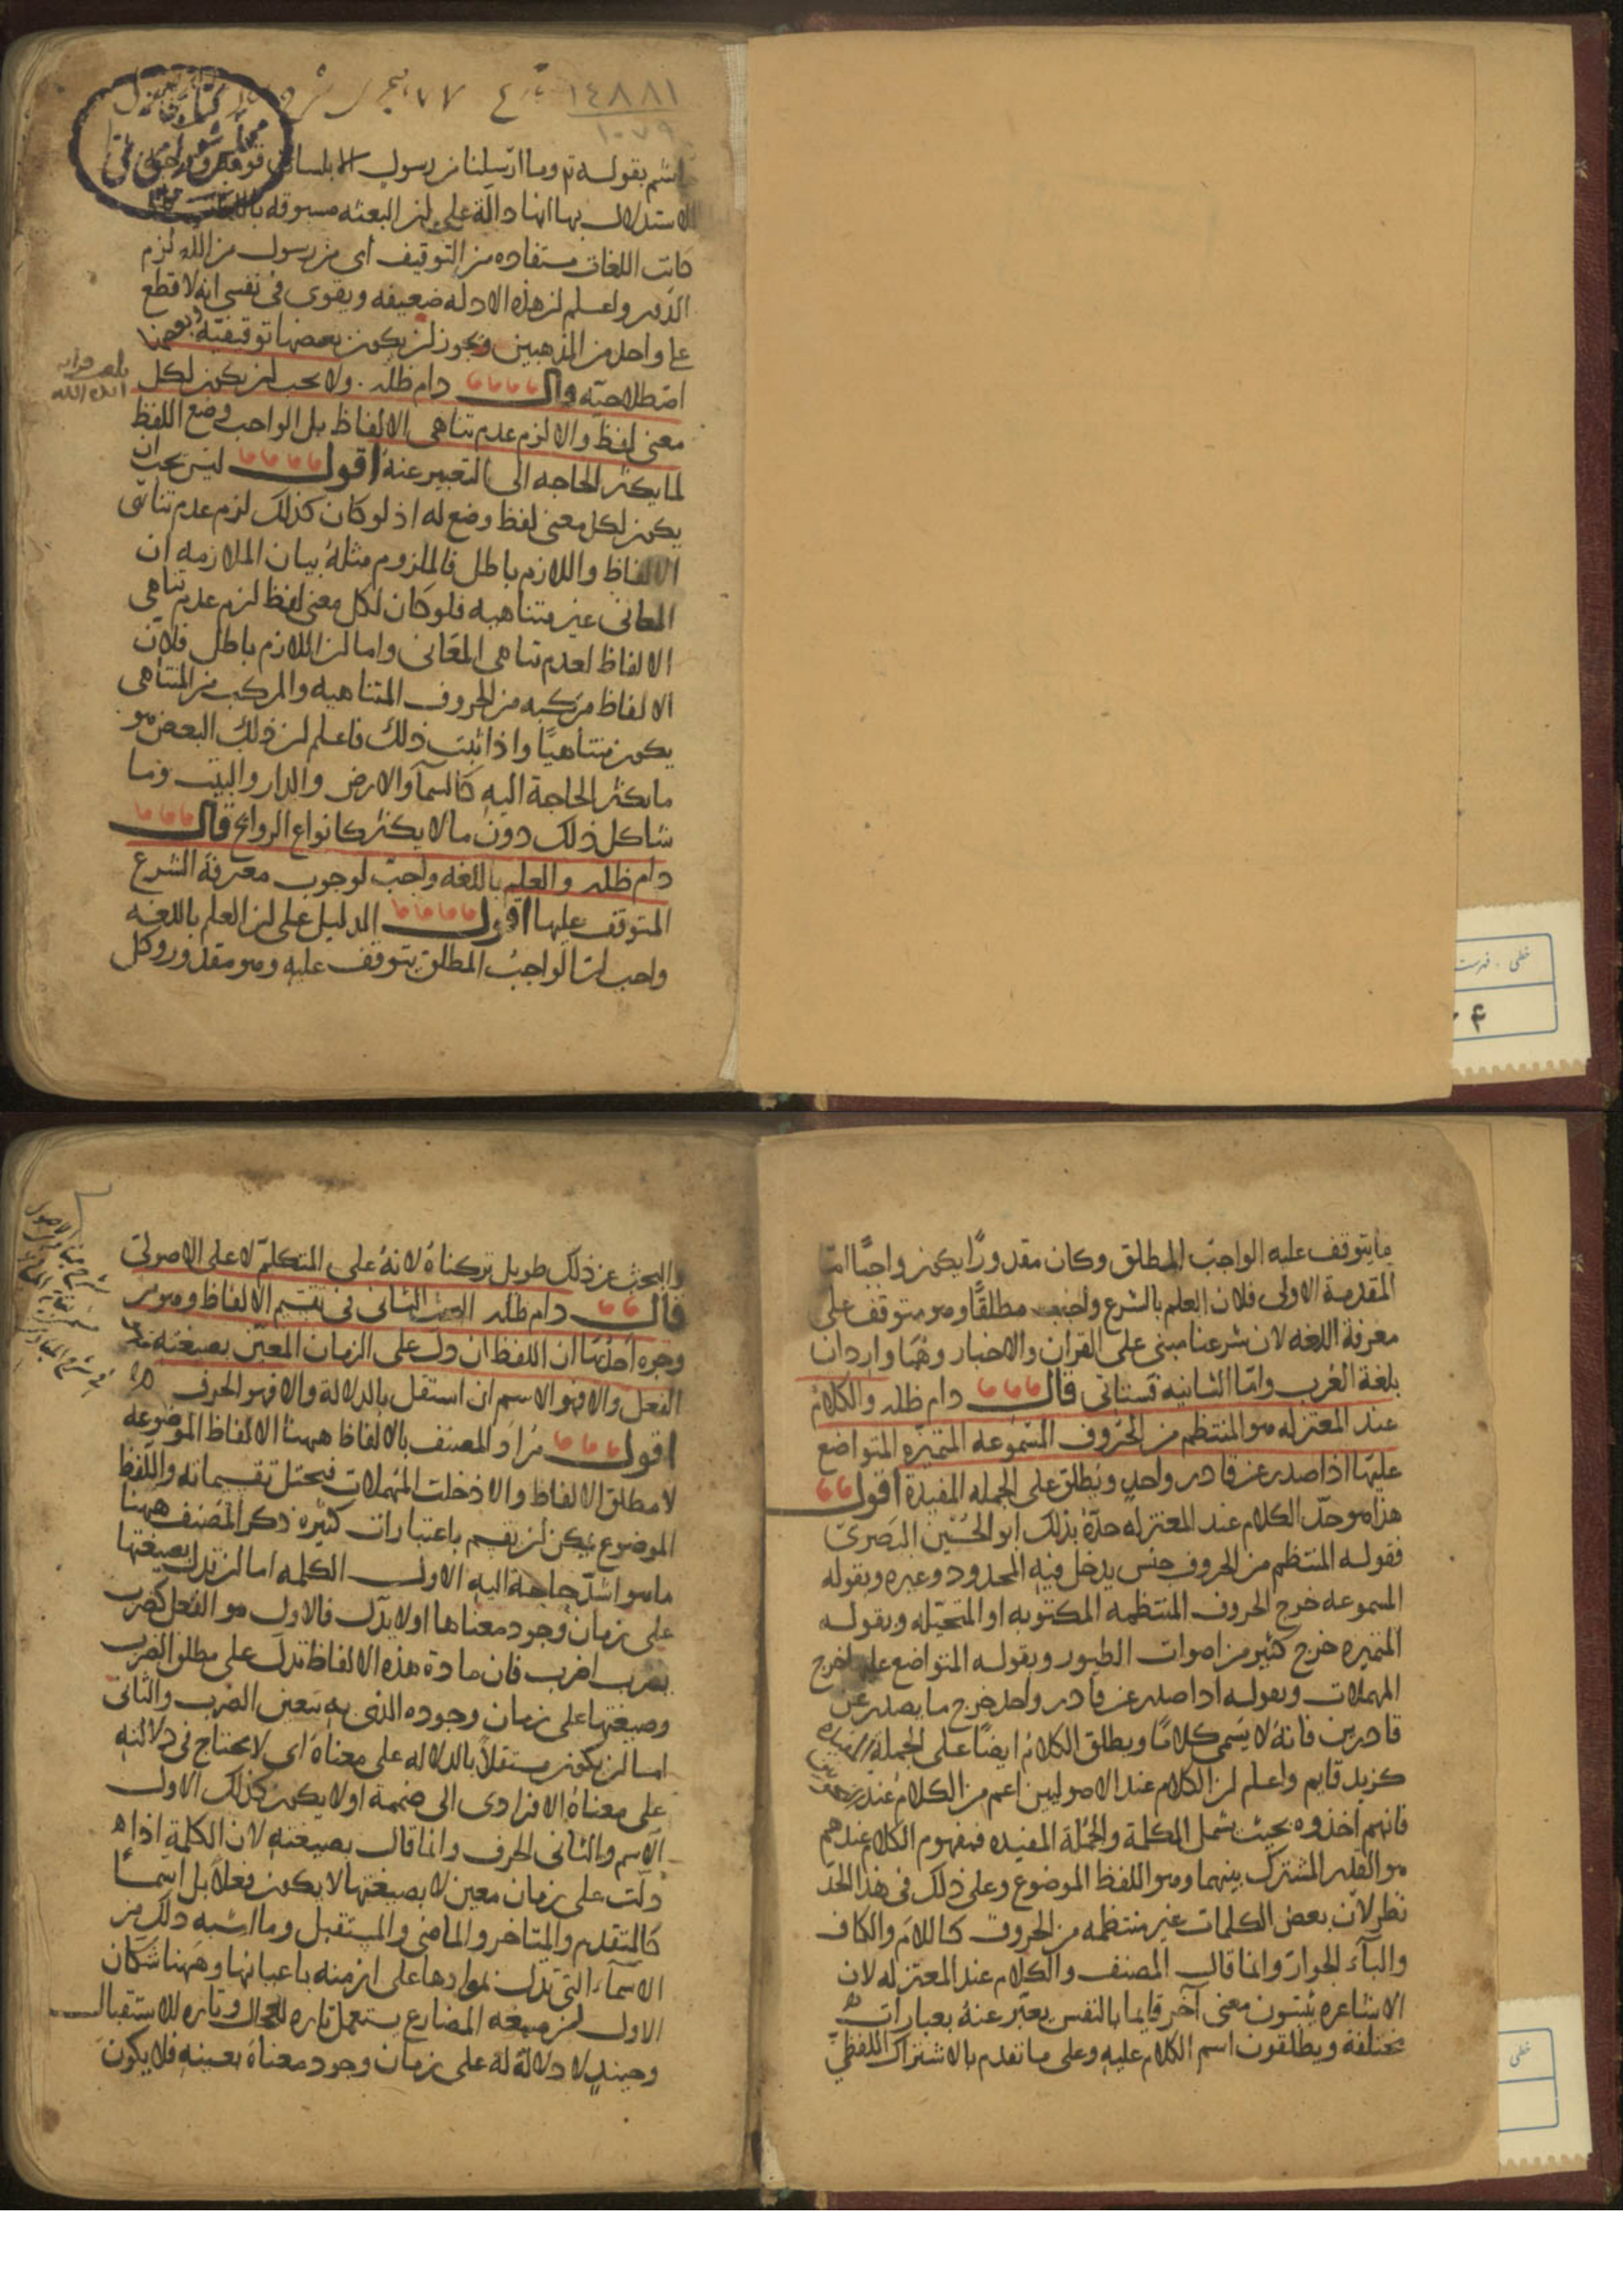 ١٤٨٨١
١٠٧٩
بقوله تم وما ارسلنا من رسول الا بلسان قومه
الاستدلال بها انها دالة على ان البعثه مسبوقه باللغات
كانت اللغات مستفاده من التوقيف اى من رسول من الله لزم
الدور واعلم ان هذه الادله ضعيفه ويقوى فى نفسى انه لا قطع
على واحد من المذهبين ويجوز ان يكون بعضها توقيفيه وبعضها
اصطلاحيه قال دام ظله ولا يجب ان يكون لكل
معنى لفظ والا لزم عدم تناهى الالفاظ بل الواجب وضع اللفظ
لما يكثر الحاجه الى التعبير عنه اقول ليس يجب ان
يكون لكل معنى لفظ وضع له اذ لو كان كذلك لزم عدم تناهى
الالفاظ واللازم باطل فالملزوم مثله بيان الملازمه ان
المعانى غير متناهيه فلو كان لكل معنى لفظ لزم عدم تناهى
الالفاظ لعدم تناهى المعانى واما ان اللازم باطل فلان
الالفاظ مركبه من الحروف المتناهيه والمركب من المتناهى
يكون متناهيًا واذا ثبت ذلك فاعلم ان ذلك البعض هو
ما يكثر الحاجة اليه كالسمآ والارض والدار والبيت وما
شاكل ذلك دون ما لا يكثر كانواع الروايح قال
دام ظله والعلم باللغه واجب لوجوب معرفة الشرع
المتوقف عليها اقول الدليل على ان العلم باللغه
واجب ان الواجب المطلق يتوقف عليه وهو مقدور وكل
خطى - فهرست
ما يتوقف عليه الواجب المطلق وكان مقدورًا يكون واجبًا امّا
المقدمة الاولى فلان العلم بالشرع واجب مطلقًا وهو متوقف على
معرفة اللغه لان شرعنا مبنى على القران والاخبار وهما واردان
بلغة العرب وامّا الثانيه فستاتى قال دام ظله والكلام
عند المعتزله هو المنتظم من الحروف المسموعه المتميزه المتواضع
عليها اذا صدر عن قادر واحد ويطلق على الجمله المفيدة اقول
هذا هو حدّ الكلام عند المعتزله حدّه بذلك ابو الحسين البصرى
فقوله المنتظم من الحروف جنس يدخل فيه المحدود وغيره وبقوله
المسموعه خرج الحروف المنتظمه المكتوبه او المتخيّله وبقوله
المتميزه خرج كثير من اصوات الطيور وبقوله المتواضع عليها خرج
المهملات وبقوله اذا صدر عن قادر واحد خرج ما يصدر عن
قادرين فانه لا يسمى كلامًا ويطلق الكلام ايضًا على الجملة المفيده
كزيد قايم واعلم ان الكلام عند الاصوليين اعم من الكلام عند
فانهم اخذوه بحيث يشمل الكلمة والجملة المفيده فمفهوم الكلام عندهم
هو القدر المشترك بينهما وهو اللفظ الموضوع وعلى ذلك فى هذا الحدّ
نظر لان بعض الكلمات غير منتظمه من الحروف كاللام والكاف
والبآء الجوارّ وانما قال المصنف والكلام عند المعتزله لان
الاشاعره يثبتون معنى آخر قايما بالنفس يعبّر عنه بعبارات
مختلفة ويطلقون اسم الكلام عليه وعلى ما تقدم بالاشتراك اللفظى
خطى
والبحث عن ذلك طويل تركناه لانه على المتكلم لا على الاصولى
قال دام ظله البحث الثانى فى تقسيم الالفاظ وهو من
وجوه احدها ان اللفظ ان دل على الزمان المعيّن بصيغته فهو
الفعل والا فهو الاسم ان استقل بالدلالة والا فهو الحرف
اقول مراد المصنف بالالفاظ ههنا الالفاظ الموضوعه
لا مطلق الالفاظ والا دخلت المهملات فيختل تقسيماته واللفظ
الموضوع يمكن ان يقسم باعتبارات كثيره ذكر المصنف ههنا
ما هو اشدّ حاجة اليه الاول الكلمه اما ان تدل بصيغتها
على زمان وجود معناها او لا يدل فالاول هو الفعل كضرب
يضرب اضرب فان مادة هذه الالفاظ تدل على مطلق الضرب
وصيغتها على زمان وجوده الذى به يتعين الضرب والثانى
اما ان يكون مستقلاً بالدلاله على معناه اى لا يحتاج فى دلالته
على معناه الافرادى الى ضميمة او لا يكون كذلك الاول
الاسم والثانى الحرف وانما قال بصيغته لان الكلمة اذا
دلّت على زمان معين لا بصيغتها لا يكون فعلاً بل اسمًا
كالمتقدم والمتاخر والماضى والمستقبل وما اشبه ذلك من
الاسمآء التى تدل بموادها على ازمنه باعيانها وههنا شكان
الاول ان صيغه المضارع يستعمل تاره للحال وتاره للاستقبال
وحينئذ لا دلالة له على زمان وجود معناه بعينه فلا يكون